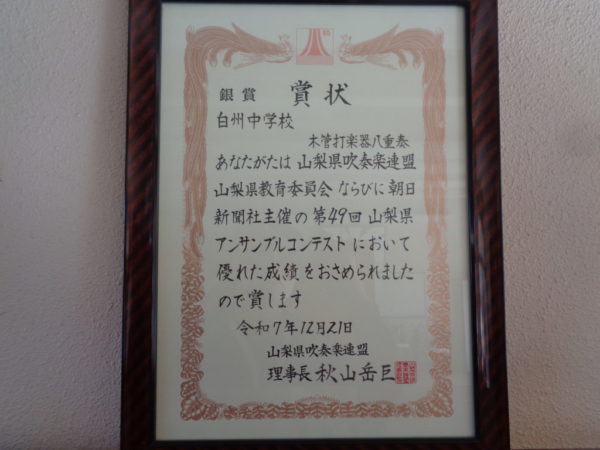 銀賞 賞状
白州中学校
木管打楽器八重奏
あなたがたは 山梨県吹奏楽連盟
山梨県教育委員会 ならびに 朝日
新聞社主催の 第49回 山梨県
アンサンブルコンテスト において
優れた成績をおさめられました
ので賞します
令和7年12月21日
山梨県吹奏楽連盟
理事長 秋山岳巨